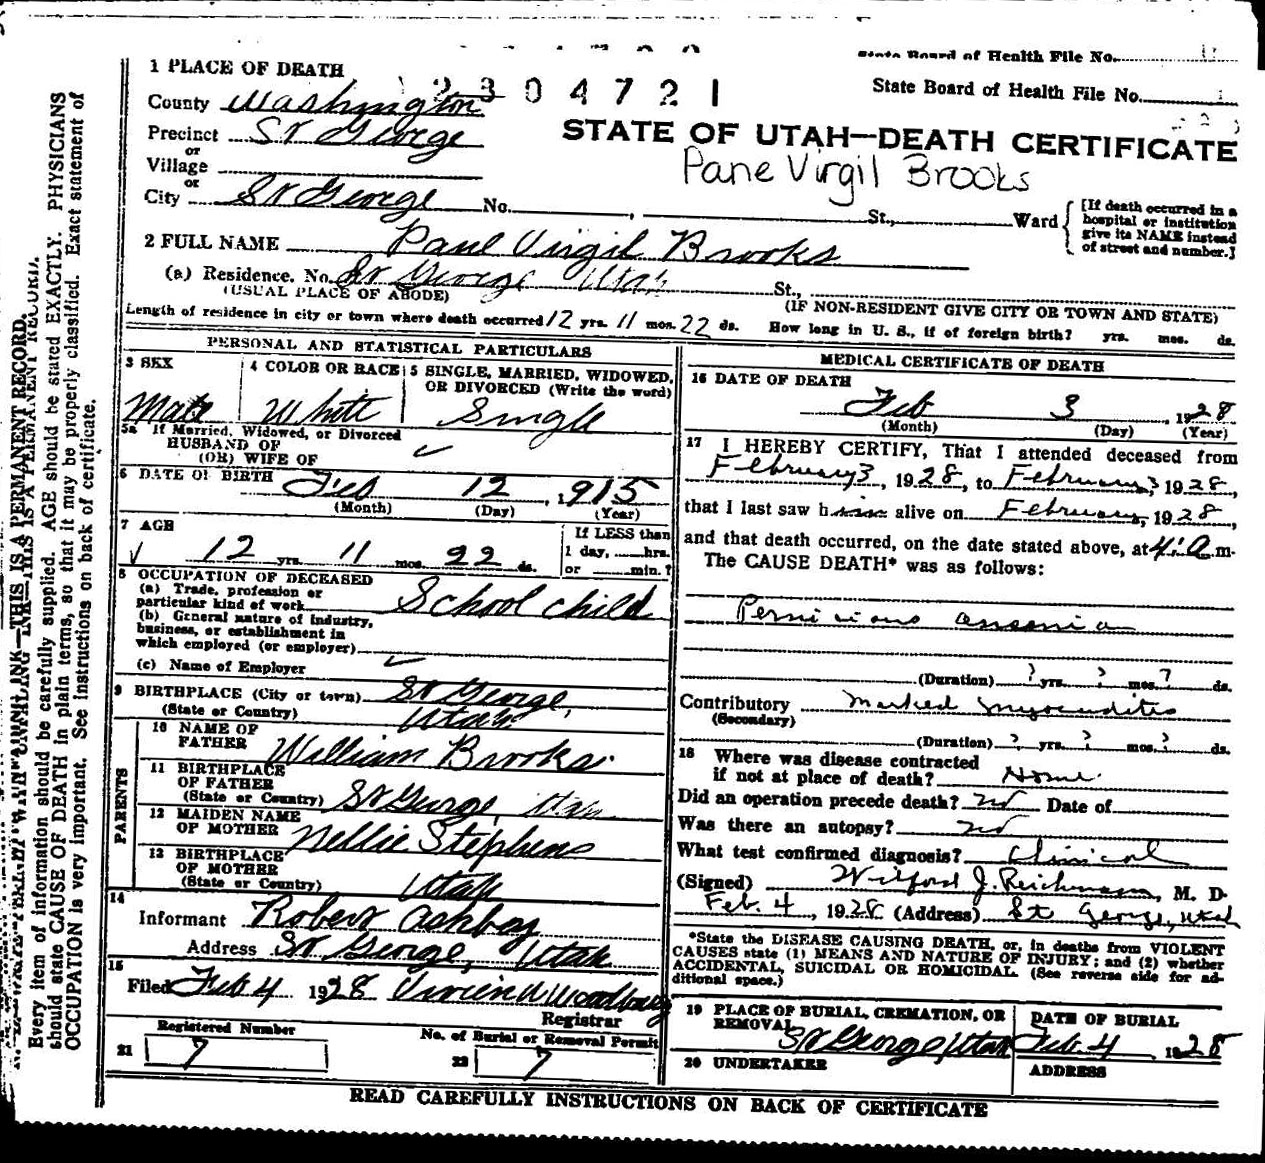 State Board of Health File No.
1 PLACE OF DEATH
State Board of Health File No.
2304721
County Washington
STATE OF UTAH—DEATH CERTIFICATE
Precinct St George
or
Pane Virgil Brooks
Village
or
City St George No. , St., Ward
[If death occurred in a
hospital or institution
give its NAME instead
of street and number.]
2 FULL NAME Pane Virgil Brooks
(a) Residence. No. St George Utah St.,
(USUAL PLACE OF ABODE) (IF NON-RESIDENT GIVE CITY OR TOWN AND STATE)
Length of residence in city or town where death occurred 12 yrs. 11 mos. 22 ds. How long in U. S., if of foreign birth? yrs. mos. ds.
PERSONAL AND STATISTICAL PARTICULARS
3 SEX 4 COLOR OR RACE 5 SINGLE, MARRIED, WIDOWED,
OR DIVORCED (Write the word)
Male White Single
5a If Married, Widowed, or Divorced
HUSBAND OF
(OR) WIFE OF ✓
6 DATE OF BIRTH Feb 12, 1915
(Month) (Day) (Year)
7 AGE If LESS than
✓ 12 yrs. 11 mos. 22 ds. 1 day, hrs.
or min.?
8 OCCUPATION OF DECEASED
(a) Trade, profession or
particular kind of work School child
(b) General nature of industry,
business, or establishment in
which employed (or employer)
(c) Name of Employer ✓
9 BIRTHPLACE (City or town) St George,
(State or Country) Utah
PARENTS
10 NAME OF
FATHER William Brooks
11 BIRTHPLACE
OF FATHER
(State or Country) St George, Utah
12 MAIDEN NAME
OF MOTHER Nellie Stephens
13 BIRTHPLACE
OF MOTHER
(State or Country) Utah
14
Informant Robert Ashby
Address St George, Utah
15
Filed Feb 4 1928 Woodbury
Registrar
Registered Number No. of Burial or Removal Permit
21 7 22 7
MEDICAL CERTIFICATE OF DEATH
16 DATE OF DEATH
Feb 3, 1928
(Month) (Day) (Year)
17 I HEREBY CERTIFY, That I attended deceased from
February 3, 1928, to February 3, 1928,
that I last saw him alive on February, 1928,
and that death occurred, on the date stated above, at 4:a m.
The CAUSE DEATH* was as follows:
Pernicious anemia
(Duration) ? yrs. ? mos. ? ds.
Contributory Marked myocarditis
(Secondary)
(Duration) ? yrs. ? mos. ? ds.
18 Where was disease contracted
if not at place of death? Home
Did an operation precede death? no Date of
Was there an autopsy? no
What test confirmed diagnosis? Clinical
(Signed) Wilford J. Reichmann, M. D.
Feb. 4, 1928 (Address) St George, Utah
*State the DISEASE CAUSING DEATH, or, in deaths from VIOLENT
CAUSES state (1) MEANS AND NATURE OF INJURY; and (2) whether
ACCIDENTAL, SUICIDAL OR HOMICIDAL. (See reverse side for ad-
ditional space.)
19 PLACE OF BURIAL, CREMATION, OR
REMOVAL St George Utah
DATE OF BURIAL
Feb 4, 1928
20 UNDERTAKER ADDRESS
READ CAREFULLY INSTRUCTIONS ON BACK OF CERTIFICATE
THIS IS A PERMANENT RECORD.
Every item of information should be carefully supplied. AGE should be stated EXACTLY. PHYSICIANS
should state CAUSE OF DEATH in plain terms, so that it may be properly classified. Exact statement of
OCCUPATION is very important. See instructions on back of certificate.